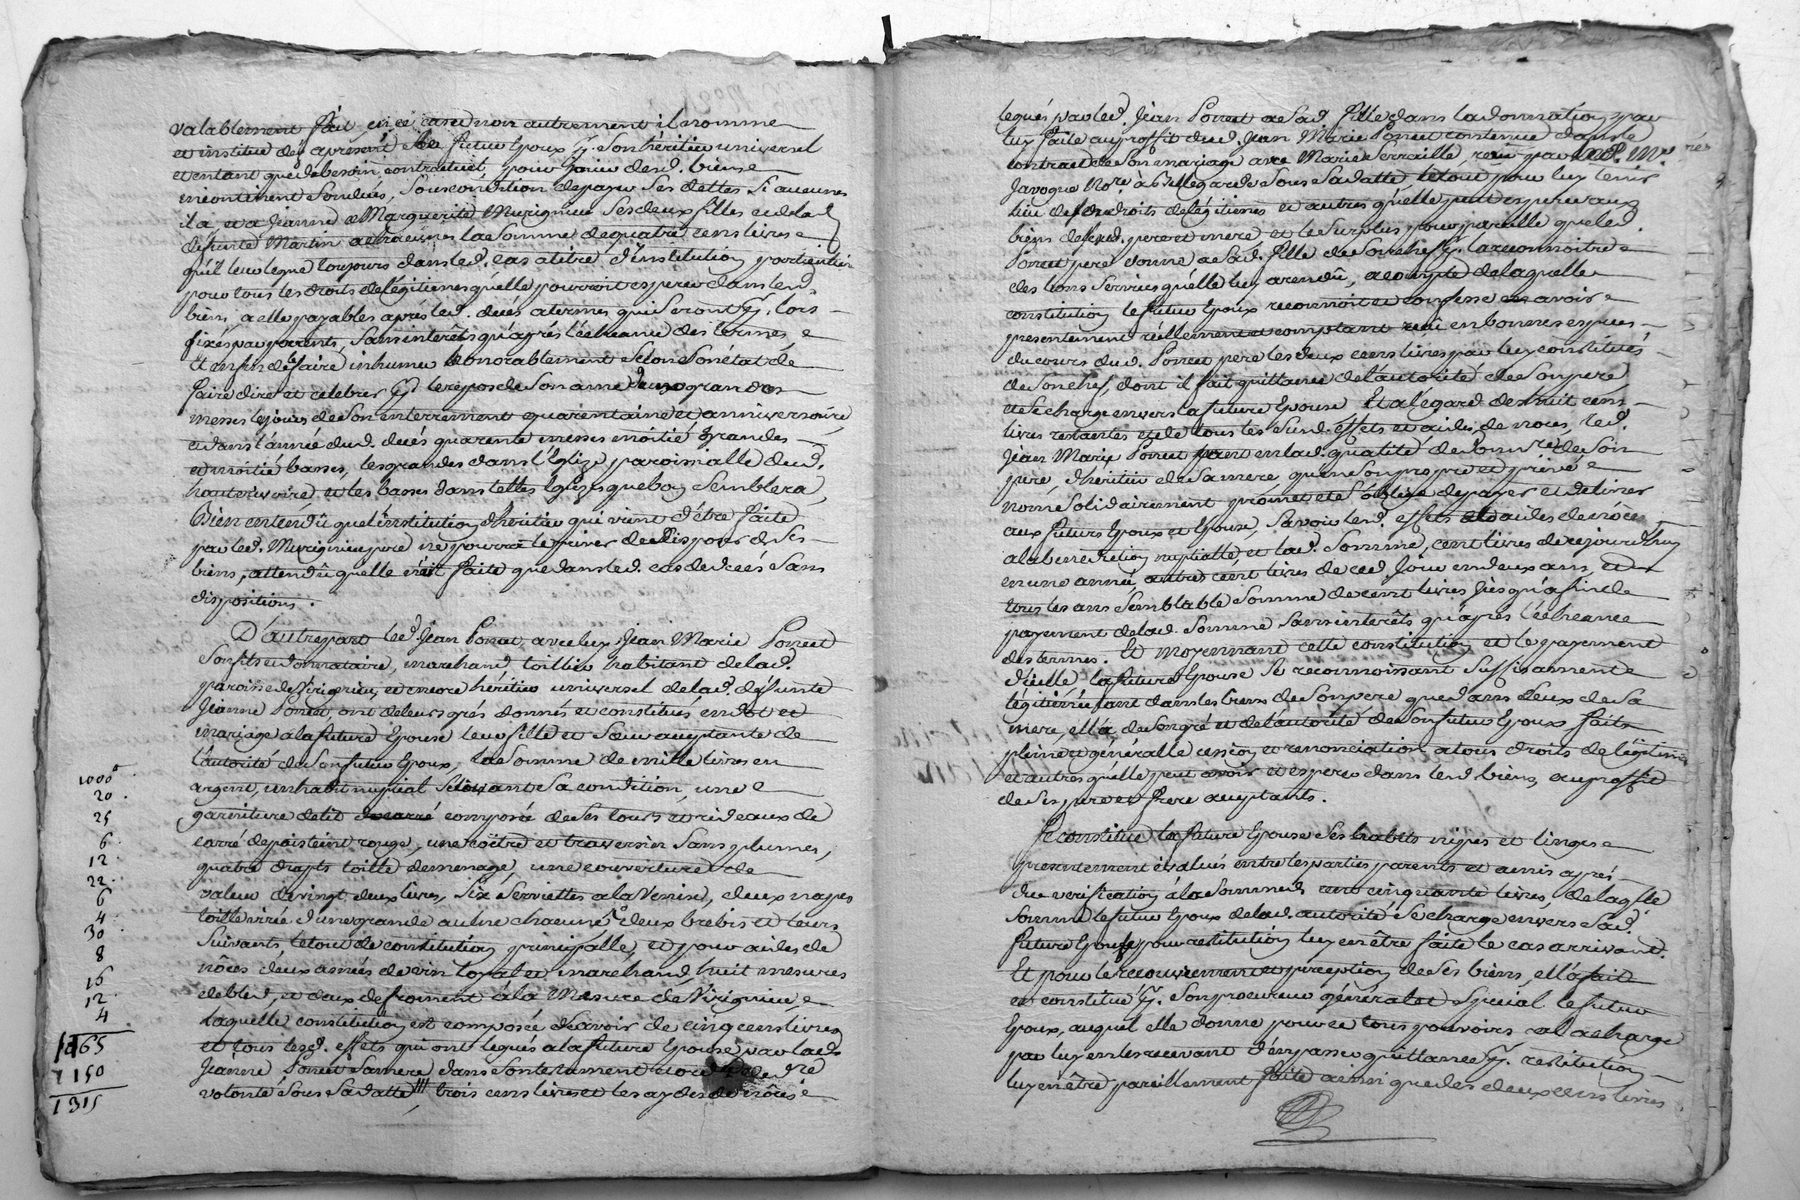 valablement fait en ce cas et non autrement il nomme
et institue dès apresent led. futur Epoux pr. Son héritier universel
et entant que de besoin contractuel, pour jouir desd. biens
incontinent Son decès, Sous condition de payer Ses dettes Si aucunes
il a et a Jeanne & Marguerite Murigneu Ses deux filles et de lad.
defunte Martin a chacunes la Somme de quatre cens livres
qu'il leur legue toujours dans led. cas a titre d'institution particuliere
pour tous les droits de légitimes qu'elle pourroit esperer dans lesd.
biens, a elle payables après led. decès a termes qui Seront pr. lors
fixés par parents, Sans interêts qu'aprés l'écheance des termes,
et enfin de le faire inhumer honorablement Selon Son état de
faire dire et celebrer pr. le repos de Son ame deux grandes
messes les jours de Son enterrement quarentaine et anniversaire,
et dans l'année dud. decés quarente messes moitié grandes
et moitié basses, les grandes dans l'Eglize paroissialle dud.
hauterivoire et les basses dans telles Eglizes que bon Semblera,
Bien entendû que l'institution d'héritier qui vient d'être faite
par led. Murigneu pere ne pourra le priver de disposer de Ses
biens, attendû quelle n'est faite que dans led. cas de decés Sans
dispositions.
D'autre part led. Jean Poncet, avec luy Jean Marie Poncet
Son fils et donnataire, marchand toillier habitant de lad.
paroisse de Virigneu, et encore héritier universel de lad. défunte
Jeanne Poncet, ont de leurs grés donnés et constitués en dot et
mariage a la future Epouse leur fille et Sœur acceptante de
l'autorité de Son futur Epoux, la Somme de mille livres en
argent, un habit nuptial Suivant Sa condition, une
garniture de lit composé de Ses tours et rideaux de
carré depoisteint rouge, une coître et traversier Sans plumes,
quatre draps toille de menage, une couverture de
valeur de vingt deux livres, Six Serviettes a la Venise, deux napes
toille virée d'une grande aulne chacune, deux brebis et leurs
Suivants le tout de constitution principalle, et pour aides de
nôces deux anées de vin loyal et marchand, huit mesures
de bled, et deux de froment à la Mesure de Virigneu
laquelle constitution est composée d'avoir de cinq cens livres
et tous lesd. effets qui ont legués a la future Epouse par lad.
Jeanne Poncet Sa mere dans Son testament
volonté Sous Sa datte, trois cens livres et les aydes de nôces
1000#
20.
25
6.
12.
22.
6
4.
30.
8
16
12.
4.
1165
150
1315
legués par led. Jean Poncet a Sad. fille dans la donnation par
luy faite au proffit dud. Jean Marie Poncet contenue dans le
contrat de Son mariage avec Marie Serraille, reçu par led. Me.
Javogue Nore. à Bellegarde Sous Sa datte le tout pour luy tenir
lieu de Ses droits de légitimes et autres qu'elle peut esperer aux
biens de Sesd. pere et mere et le Surplus pour pareille que led.
Poncet pere donne a Sad. fille de Son chef pr. la reconnoitre
des bons Services qu'elle luy a rendû, a compte de laquelle
constitution le futur Epoux reconnoit et confesse avoir
presentement réellement et comptant reçu en bonnes especes
du cours dud. Poncet pere les deux cens livres par luy constitués
de Son chef, dont il fait quittance de l'autorité de Son pere
et Se charge envers la future Epouse. Et a l'egard des huit cens
livres restantes et de tous les Susd. effets et aides de nôces, led.
Jean Marie Poncet en lad. qualité de donnre. de Son
pere, d'heritier de Sa mere, que en Son propre et privé
nom Solidairement promet et S'oblige de payer et delivrer
aux futurs Epoux et Epouse, Savoir lesd. effets et aides de nôces
a la benediction nuptialle et lad. Somme, cent livres de ce jourd'huy
en une année, autres cent livres de ced. jour en deux ans, et
tous les ans Semblable Somme de cent livres jusqu'a fin de
payement de lad. Somme Sans interêts qu'aprés l'écheance
des termes. Et moyennant cette constitution et le payement
d'icelle la future Epouse Se reconnoissant Suffisamment
légitimée tant dans les biens de Son pere que dans ceux de Sa
mere, ell'a de Son gré et de l'autorité de Son futur Epoux fait
pleine et generalle cession et renonciation a tous droits de légitime
et autres qu'elle peut avoir et esperer dans lesd. biens, au proffit
de Ses pere et frere acceptants.
Se constitue la future Epouse Ses habits nipes et linges
presentement évalués entre les parties parents et amis après
due verification a la Somme de cent cinquante livres, de laqlle.
Somme le futur Epoux de lad. autorité Se charge envers Sad.
future Epouse pour restitution luy en être faite le cas arrivant.
Et pour le recouvrement et perception de Ses biens, ell'a fait
et constitué pr. Son procureur général et Special le futur
Epoux, auquel elle donne pouvoir tous pouvoirs a la charge
par luy en les recevant d'en passer quittance pr. restitution
luy en être pareillement faite ainsi que des deux cens livres